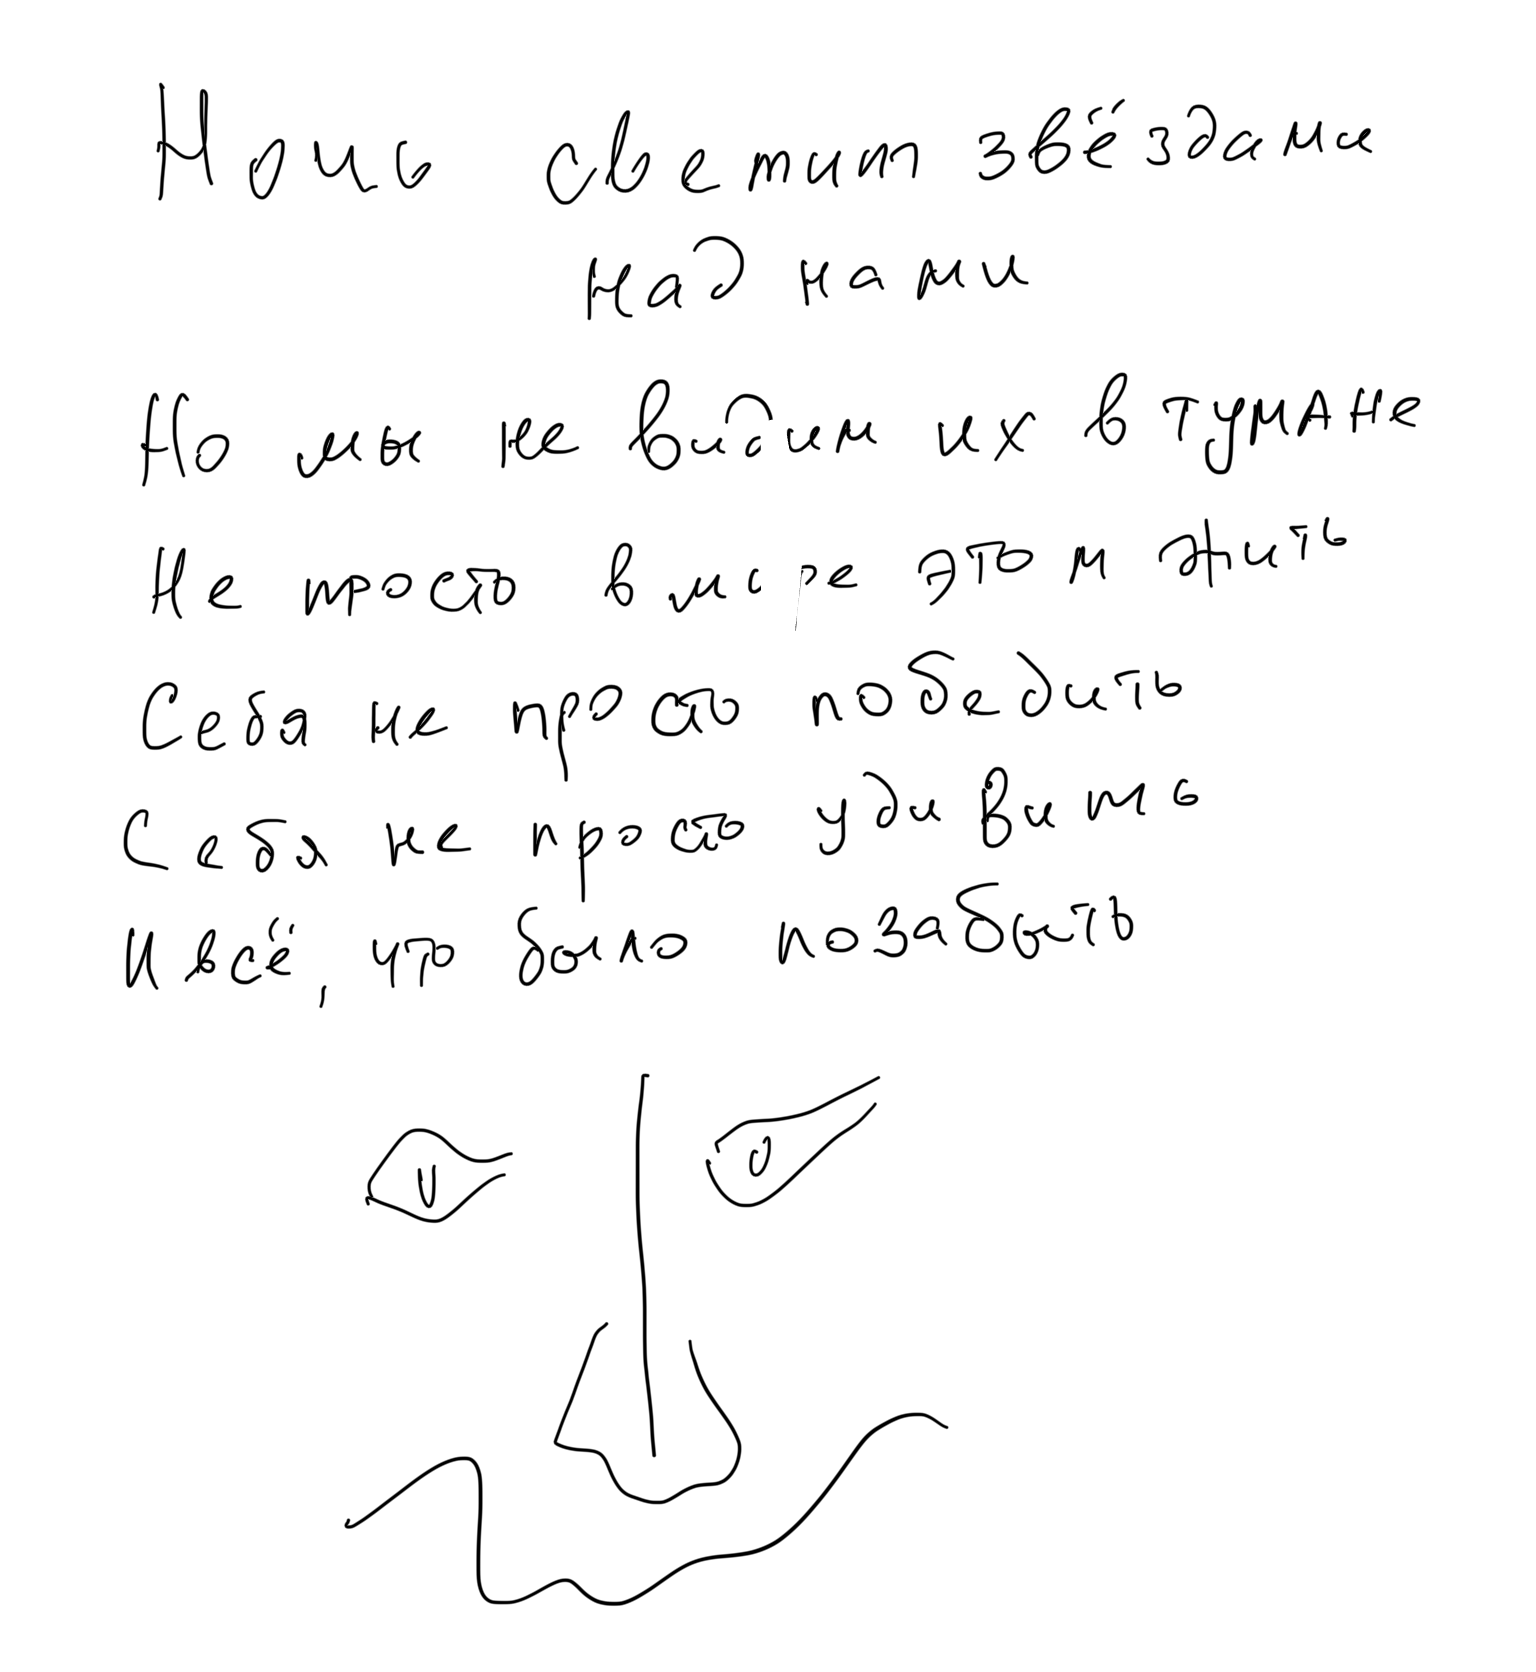 Ночь светит звёздами
над нами
Но мы не видим их в тумане
Не просто в море этом жить
Себя не просто победить
Себя не просто удивить
И всё, что было позабыть